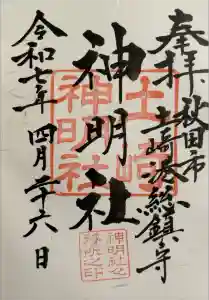 奉拝 秋田市
土崎港総鎮守
神明社
令和七年 四月二十六日
土崎
神明社
神明社之